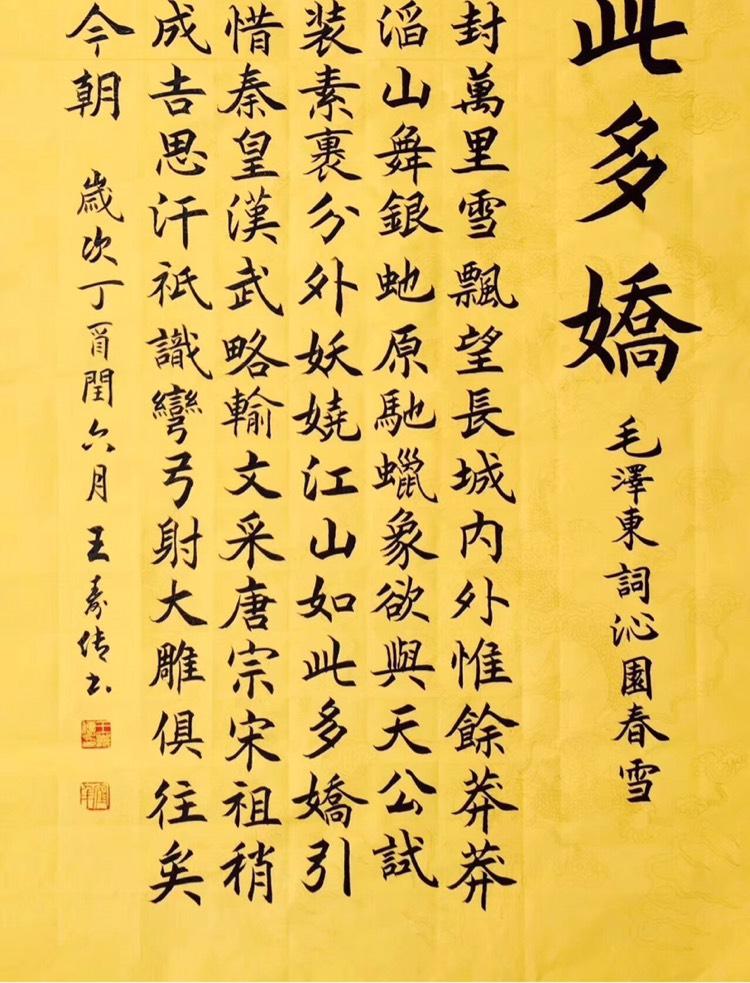 此多嬌
毛澤東詞沁園春雪
封萬里雪飄望長城内外惟餘莽莽
滔山舞銀虵原馳蠟象欲與天公試
裝素裹分外妖嬈江山如此多嬌引
惜秦皇漢武略輸文采唐宗宋祖稍
成吉思汗祇識彎弓射大雕俱往矣
今朝 歲次丁酉閏六月王寿倩书